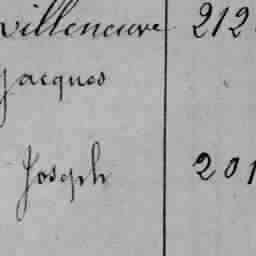 villeneuve 212
Jacques
Joseph 201